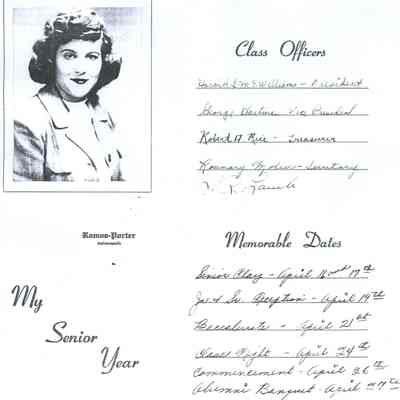 Class Officers
Williams - President
George Vice President
Robert Rice - Treasurer
Rosemary - Secretary
Ramos-Porter
Indianapolis
Memorable Dates
My
Senior
Year
Senior Play - April 16 and 17th
Jr & Sr. Reception - April 19th
Baccalaureate - April 21st
Class Night - April 24th
Commencement - April 26th
Alumni Banquet - April 27th